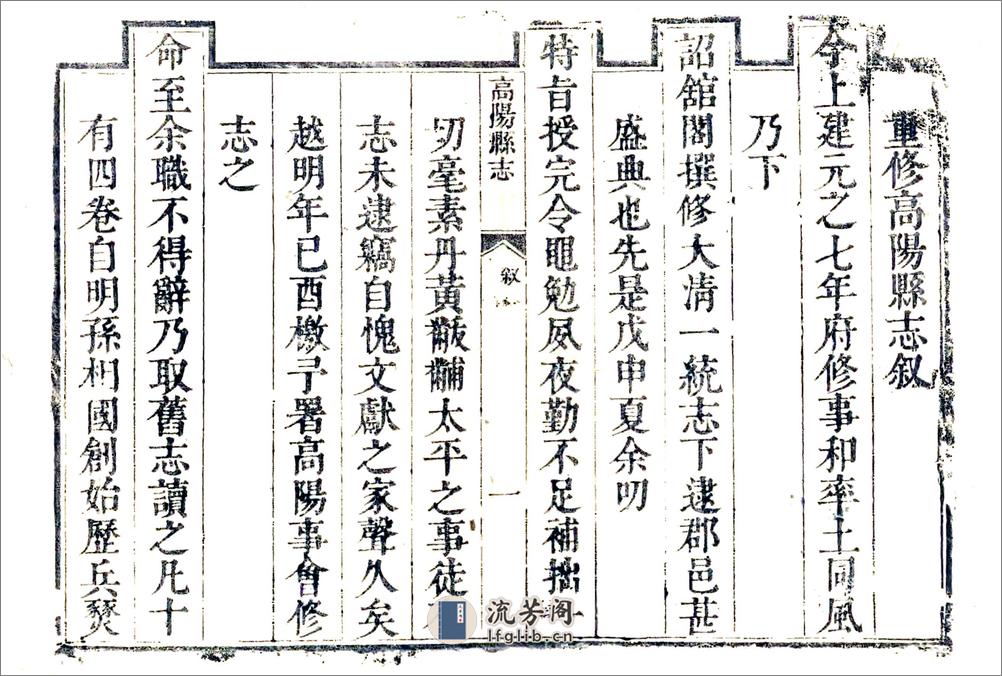 重修高陽縣志叙
今上建元之七年府修事和率土同風
乃下
詔舘閣撰修大清一統志下逮郡邑甚
盛典也先是戊申夏余叨
特旨授完令黽勉夙夜勤不足補拙
高陽縣志
叙
一
切毫素丹黃黻黼太平之事徒
志未逮竊自愧文獻之家聲久矣
越明年已酉檄予署高陽事會修
志之
命至余職不得辭乃取舊志讀之凡十
有四卷自明孫相國創始歷兵燹
流芳阁
lfglib.cn